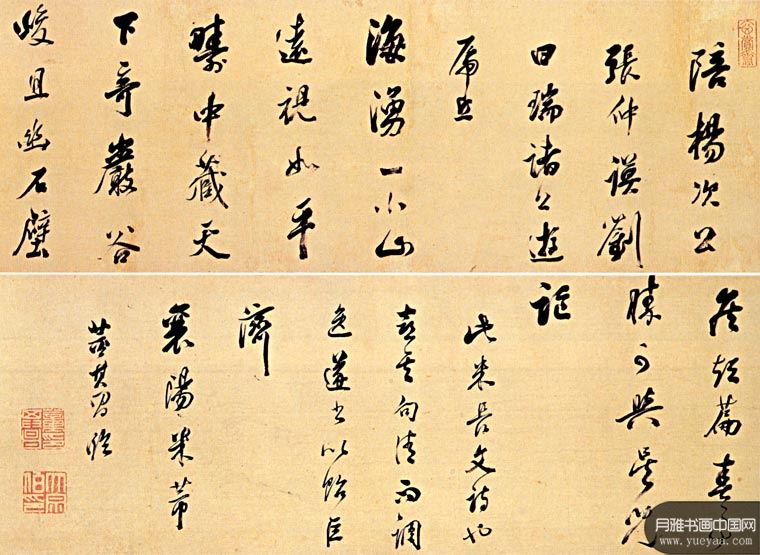 陪楊次公
張仲謨劉
曰瑞諸公遊
虎丘
海湧一小山
遠視如平
疇中藏天
下奇巖谷
峻且幽石壁
勝可與
此米長文詩也
喜其句清而調
逸遂書以貽巨
濟
襄陽米芾
董其昌臨
月雅书画中国网
www.yueyaa.com